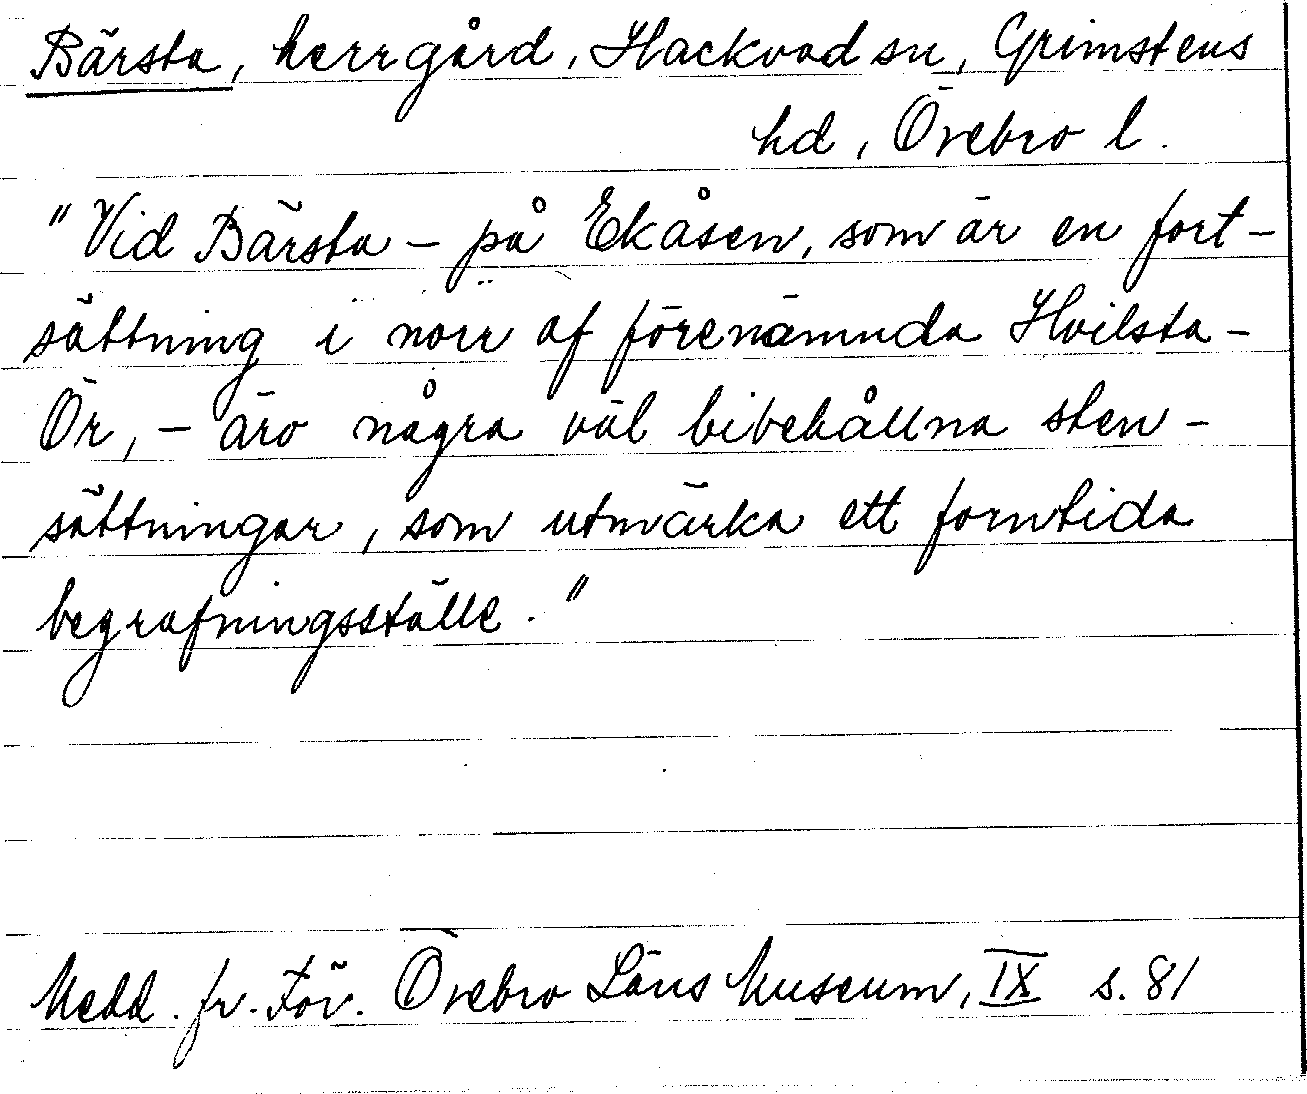 Bärsta, herrgård, Hackvad sn, Grimstens
hd, Örebro l.
"Vid Bärsta – på Ekåsen, som är en fort-
sättning i norr af förenämnda Hvilsta-
Ör, – äro några väl bibehållna sten-
sättningar, som utmärka ett forntida
begrafningsställe."
Medd. fr. För. Örebro Läns Museum, IX s. 81